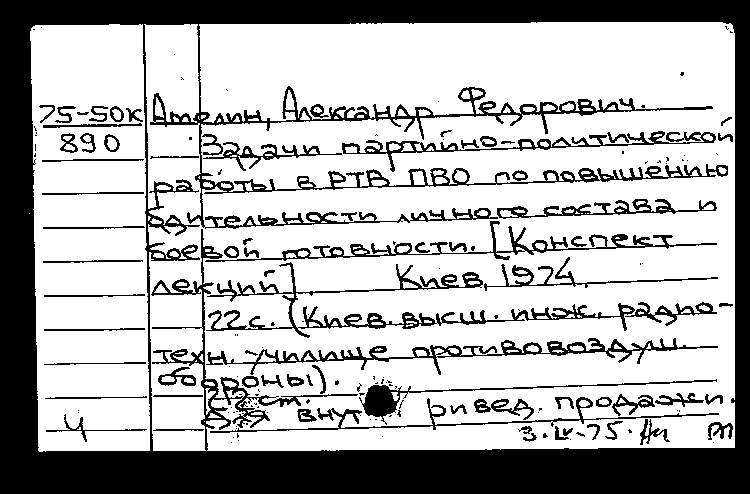 75-50к Амелин, Александр Федорович.
890 Задачи партийно-политической
работы в РТВ ПВО по повышению
бдительности личного состава и
боевой готовности. [Конспект
лекций]. Киев, 1974.
22 с. (Киев. высш. инж. радио-
техн. училище противовоздуш.
обороны).
212 ст.
Для внут ривед. продажи.
Ч 3.IV-75.